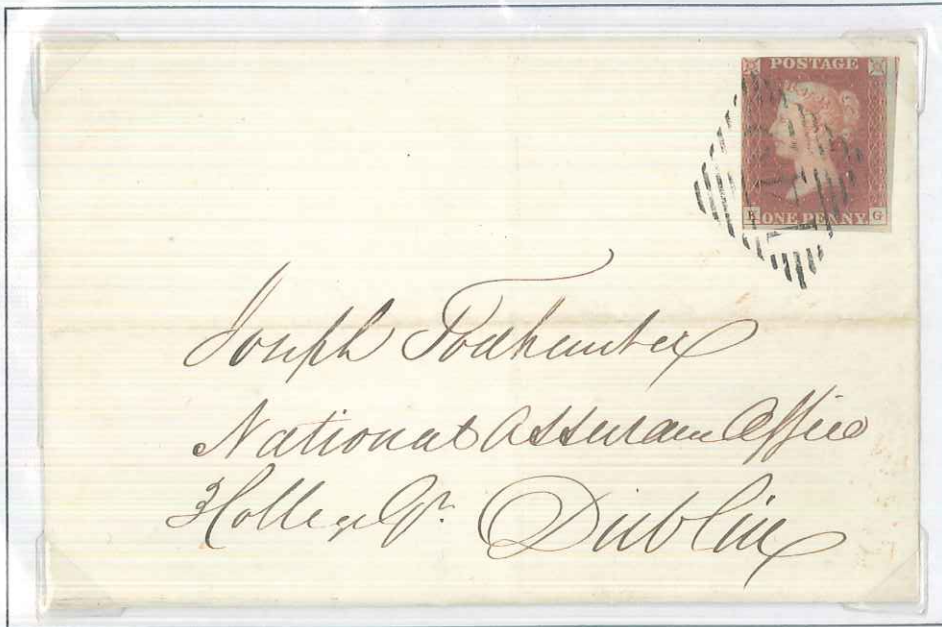 POSTAGE
ONE PENNY
G
Joseph Todhunter
National Assurance Office
3 College Gn
Dublin